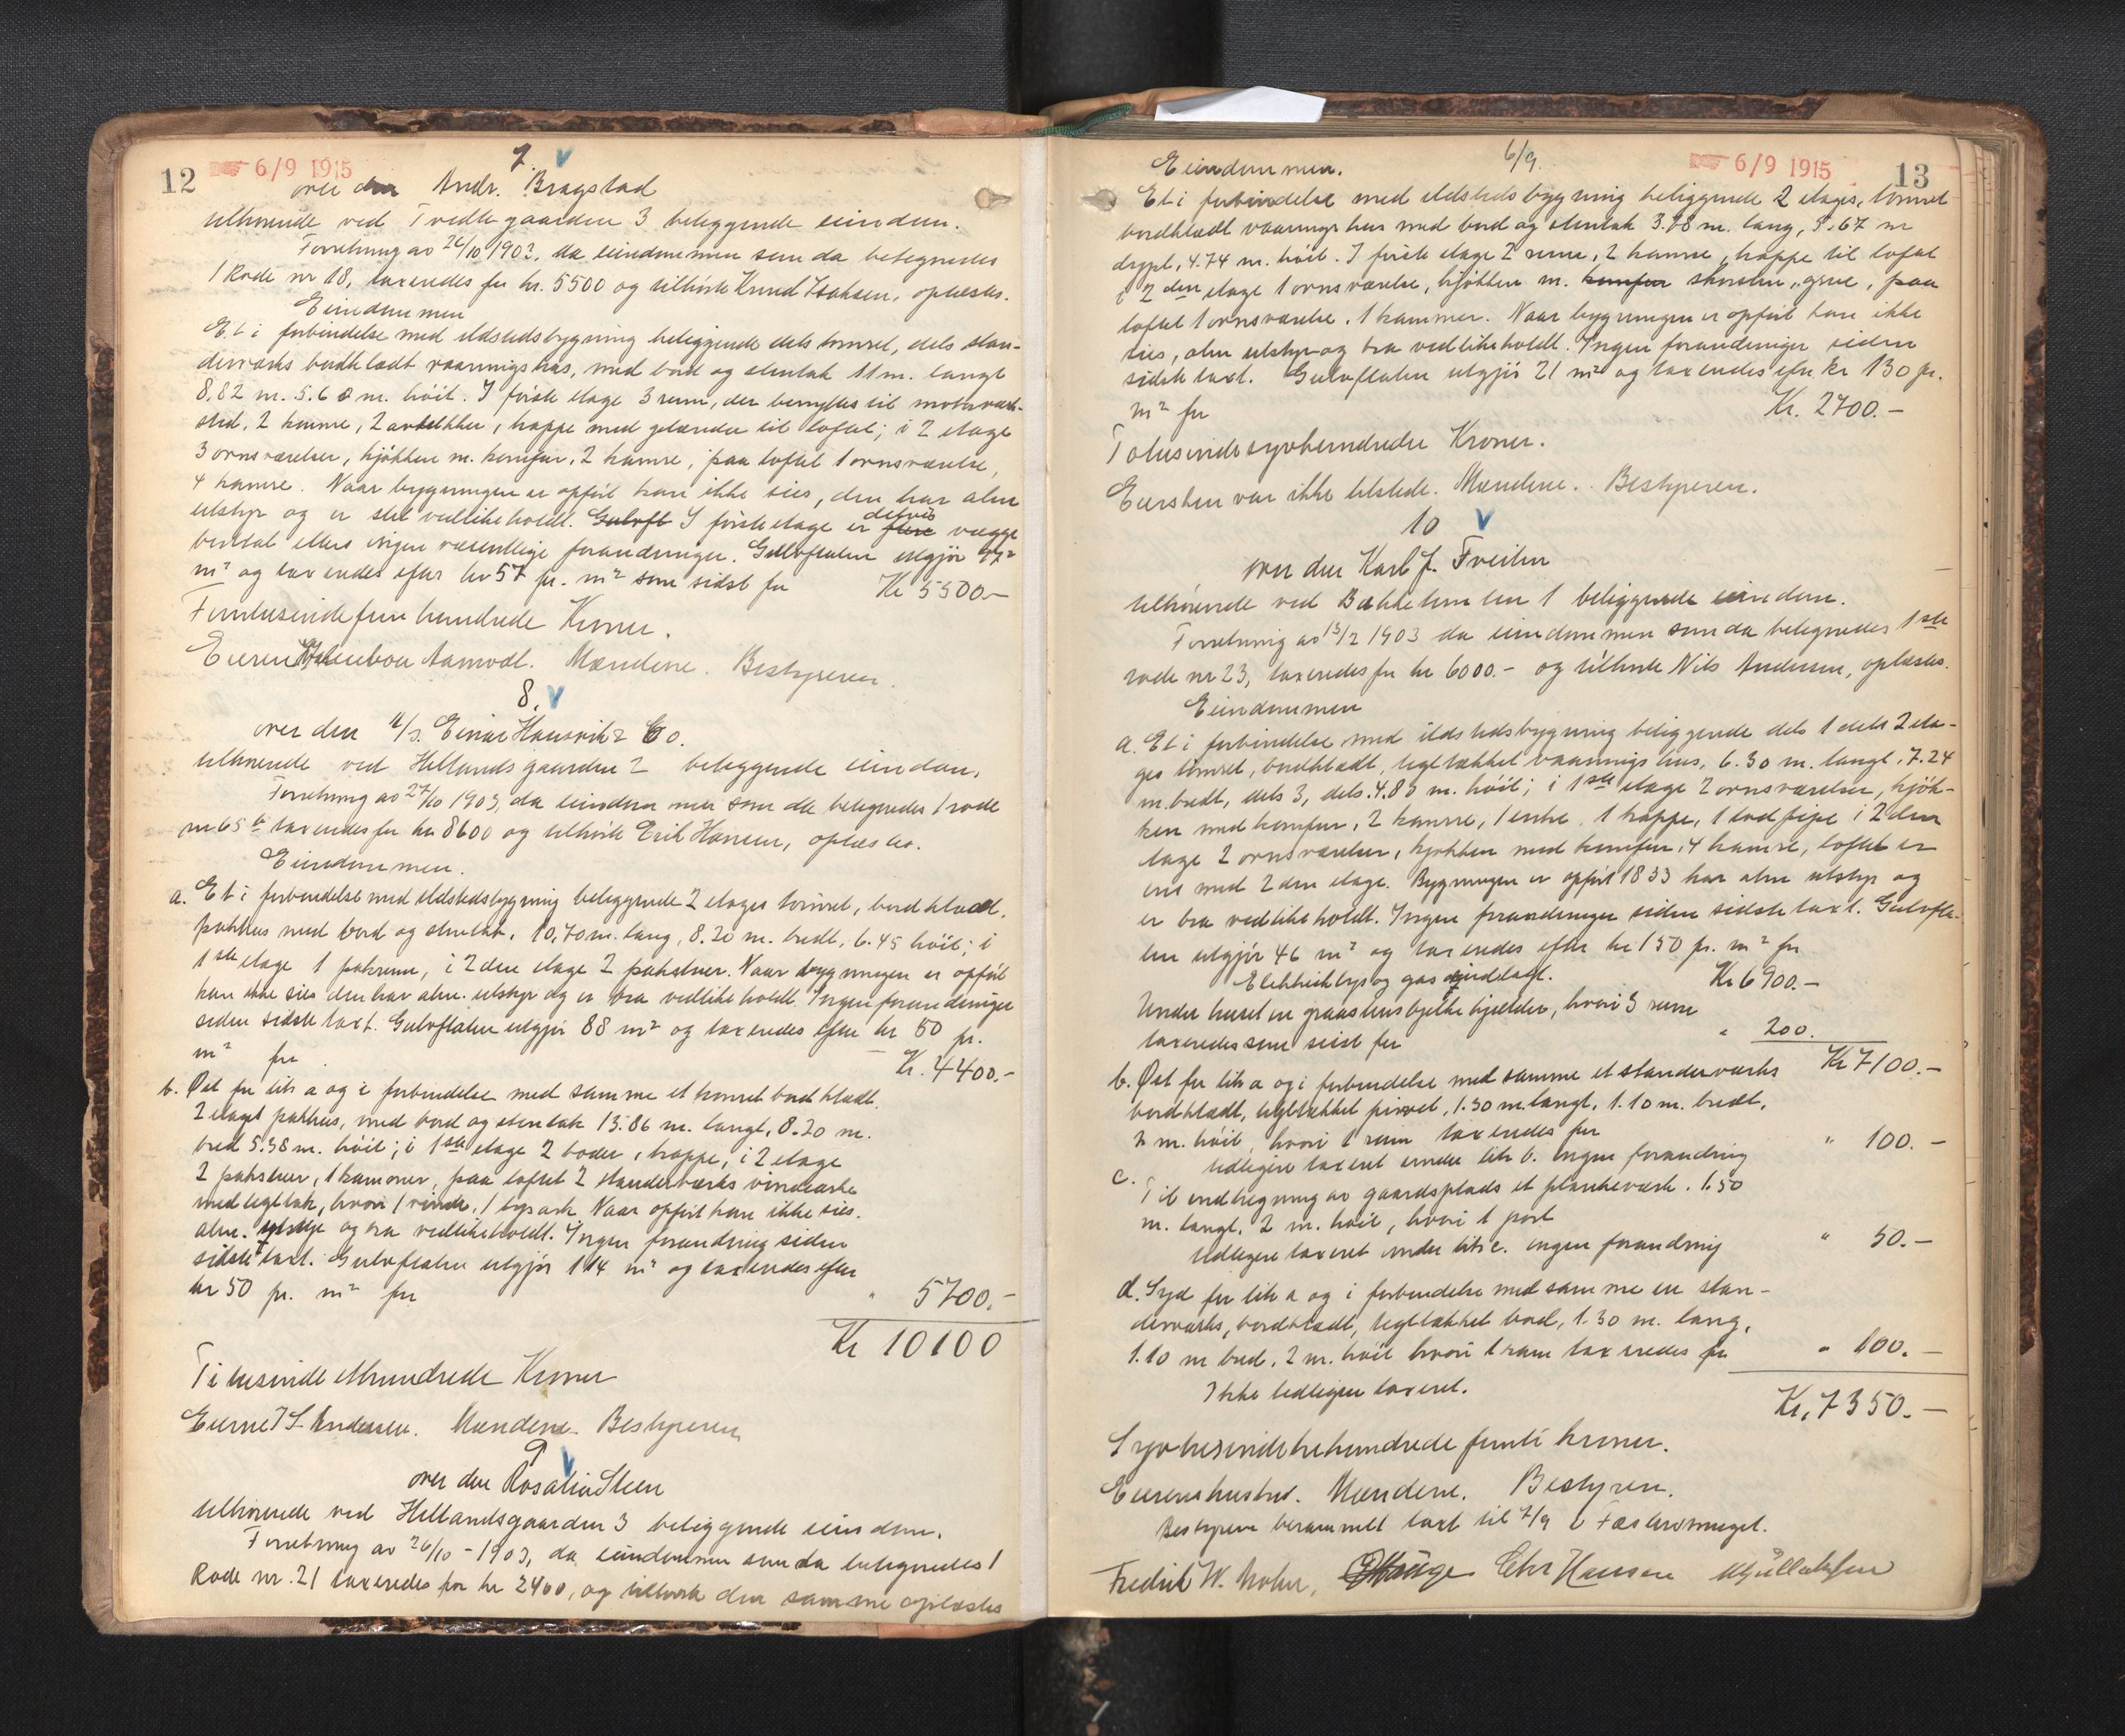 12 6/9 1915
7.
over den Andr. Bragstad
tilhørende ved Tvedtegaarden 3 beliggende eiendom.
Forretning av 26/10 1903, da eiendommen som da betegnedes
1 Rode nr 18, taxeredes for kr. 5500 og tilhørte Knud Isaksen, oplæstes.
Eiendommen
Et i forbindelse med ildstedsbygning beliggende dels tømret, dels stan-
derværks bordklædt vaaningshus, med bord og stentak 11 m. langt
8,82 m. 5.60 m. høit. I første etage 3 rum, der benyttes til motorværk-
sted, 2 kamre, 2 avlukker, trappe med gelænder til loftet; i 2 etage
3 ovnsværelser, kjøkken m. komfur, 2 kamre, paa loftet 1 ovnsværelse,
4 kamre. Naar bygningen er opført kan ikke sies, den har alm
utstyr og er slet vedlikeholdt. Gulvfl I første etage er flere delvis vægge
borttat ellers ingen væsentlige forandringer. Gulvflaten utgjør 97
m² og taxeredes efter kr 57 pr. m² som sidst for Kr 5500.-
Femtusindefemhundrede Kroner.
Eieren Aamodt. Mændene. Bestyreren.
8.
over den A/S. Einar Hausvik & Co.
tilhørende ved Hellandsgaarden 2 beliggende eiendom.
Forretning av 27/10 1903, da eiendommen som da betegnedes 1 rode
nr 65 b taxeredes for kr 8600 og tilhørte Erik Hansen, oplæstes.
Eiendommen.
a. Et i forbindelse med ildstedsbygning beliggende 2 etages tømret, bordklædt,
pakhus med bord og stentak, 10,70 m. lang, 8.20 m. bredt, 6.45 høit; i
1ste etage 1 pakrum, i 2den etage 2 pakstuer. Naar bygningen er opført
kan ikke sies den har alm. utstyr og er bra vedlikeholdt. Ingen forandringer
siden sidste taxt. Gulvflaten utgjør 88 m² og taxeredes efter kr 50 pr.
m² for Kr. 4400.-
b. Øst for litr a og i forbindelse med samme et tømret bordklædt
2 etages pakhus, med bord og stentak 13.86 m. langt, 8.20 m.
bred 5.38 m. høit; i 1ste etage 2 boder, trappe, i 2 etage
2 pakstuer, 1 kammer, paa loftet 2 standerværks vindearke
med tegltak, hvori 1 vinde, 1 lysark. Naar opført kan ikke sies.
alm. utstyr og bra vedlikeholdt. Ingen forandring siden
sidste taxt. Gulvflaten utgjør 114 m² og taxeredes efter
kr 50 pr. m² for " 5700.-
Kr 10100
Titusindeethundrede Kroner
Eierne Andersen. Mændene. Bestyreren
9
over den Rosalia Steen
tilhørende ved Hellandsgaarden 3 beliggende eiendom.
Forretning av 26/10 - 1903, da eiendommen som da betegnedes 1
Rode nr. 21 taxeredes for kr 2400, og tilhørte den samme oplæstes
6/9. 6/9 1915 13
Eiendommen.
Et i forbindelse med ildstedsbygning beliggende 2 etages, tømret
bordklædt vaaningshus med bord og stentak 3.98 m. lang, 5.67 m
dypt, 4.74 m. høit. I første etage 2 rum, 2 kamre, trappe til loftet
i 2den etage 1 ovnsværelse, kjøkken m. komfur skorsten, grue, paa
loftet 1 ovnsværelse. 1 kammer. Naar bygningen er opført kan ikke
sies, alm utstyr og bra vedlikeholdt. Ingen forandringer siden
sidste taxt. Gulvflaten utgjør 21 m² og taxeredes efter kr 130 pr.
m² for Kr. 2700.-
Totusindesyvhundrede Kroner.
Eiersken var ikke tilstede. Mændene. Bestyreren.
10
over den Karl J. Tveiten
tilhørende ved Bakketomten 1 beliggende eiendom.
Forretning av 13/2 1903 da eiendommen som da betegnedes 1ste
rode nr 23, taxeredes for kr 6000.- og tilhørte Nils Andersen, oplæstes.
Eiendommen
a. Et i forbindelse med ildstedsbygning beliggende dels 1 dels 2 eta-
ges tømret, bordklædt, tegltækket vaaningshus, 6.30 m. langt, 7.24
m. bredt, dels 3, dels 4.83 m. høit; i 1ste etage 2 ovnsværelser, kjøk-
ken med komfur, 2 kamre, 1 entre, 1 trappe, 1 lodpipe i 2den
etage 2 ovnsværelser, kjøkken med komfur, 4 kamre, loftet er
ens med 2den etage. Bygningen er opført 1833 har alm utstyr og
er bra vedlikeholdt. Ingen forandringer siden sidste taxt. Gulvfla-
ten utgjør 46 m² og taxeredes efter kr 150 pr. m² for
Elektrisk lys og gas indlagt. Kr 6900.-
Under huset en graastens bjelke kjælder, hvori 3 rum
taxeredes som sidst for " 200.
Kr 7100.-
b. Øst for litr a og i forbindelse med samme et standerværks
bordklædt, tegltækket privet, 1.50 m. langt, 1.10 m. bredt,
2 m. høit, hvori 1 rum taxeredes for " 100.-
tidligere taxeret under litr b. ingen forandring
c. Til indhegning av gaardsplads et plankeværk. 1.50
m. langt, 2 m. høit, hvori 1 port
tidligere taxeret under litr c. ingen forandring " 50.-
d. Syd for litr a og i forbindelse med samme en stan-
derværks, bordklædt, tegltækket bod, 1.30 m. lang,
1.10 m bred, 2 m. høit hvori 1 rum taxeredes for " 100.-
Ikke tidligere taxeret.
Kr. 7350.-
Syvtusindetrehundrede femti kroner.
Eierens hustru. Mændene. Bestyreren.
Bestyreren berammet taxt til 7/9
Fredrik W. Mohn, Chr Hansen